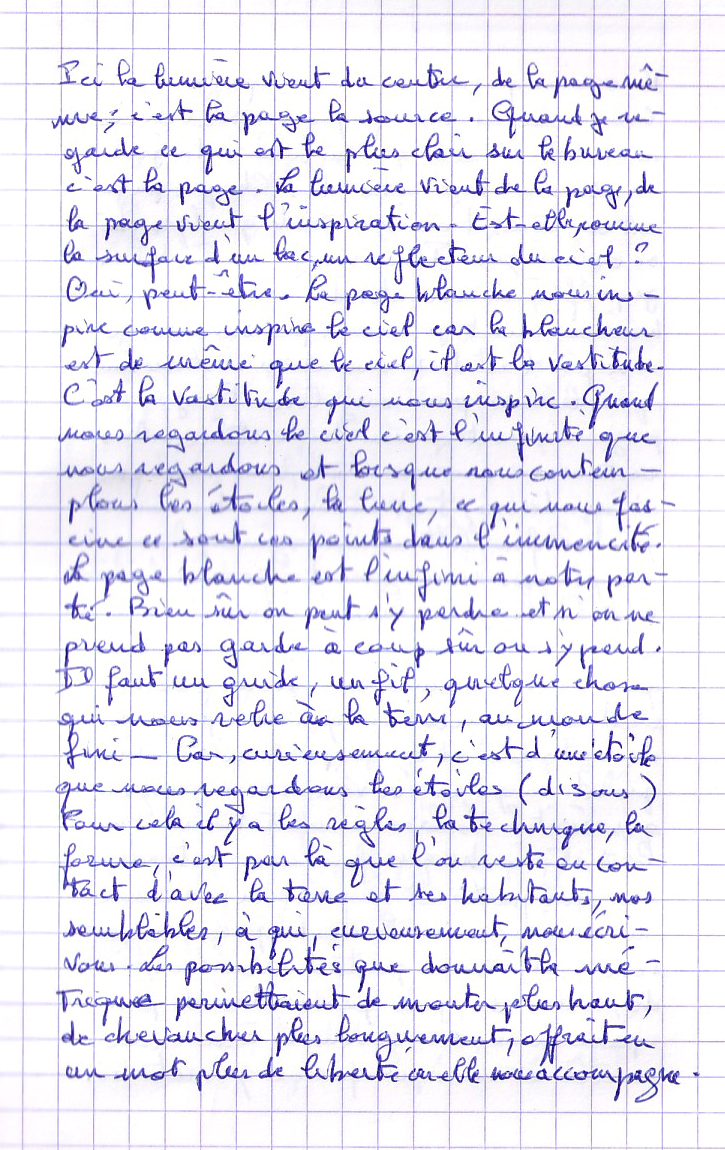 Ici la lumière vient du centre, de la page mê-
me ; c'est la page la source. Quand je re-
garde ce qui est le plus clair sur le bureau
c'est la page. La lumière vient de la page, de
la page vient l'inspiration. Est-elle comme
la surface d'un lac, un reflecteur du ciel ?
Oui, peut-être. La page blanche nous ins-
pire comme inspire le ciel car la blancheur
est de même que le ciel, il est la vastitude.
C'est la vastitude qui nous inspire. Quand
nous regardons le ciel c'est l'infinité que
nous regardons et lorsque nous contem-
plons les étoiles, la lune, ce qui nous fas-
cine ce sont ces points dans l'immencité.
La page blanche est l'infini à notre por-
té. Bien sûr on peut s'y perdre et si on ne
prend pas garde à coup sûr on s'y perd.
Il faut un guide, un fil, quelque chose
qui nous relie à la terre, au monde
fini — Car, curieusement, c'est d'une étoile
que nous regardons les étoiles (disons)
Pour cela il y a les règles, la technique, la
forme, c'est par là que l'on reste en con-
tact d'avec la terre et ses habitants, nos
semblables, à qui, curieusement, nous écri-
vons. Les possibilités que donnait la mé-
trique permettaient de monter plus haut,
de chevaucher plus longuement, offrait en
un mot plus de liberté car elle nous accompagne.